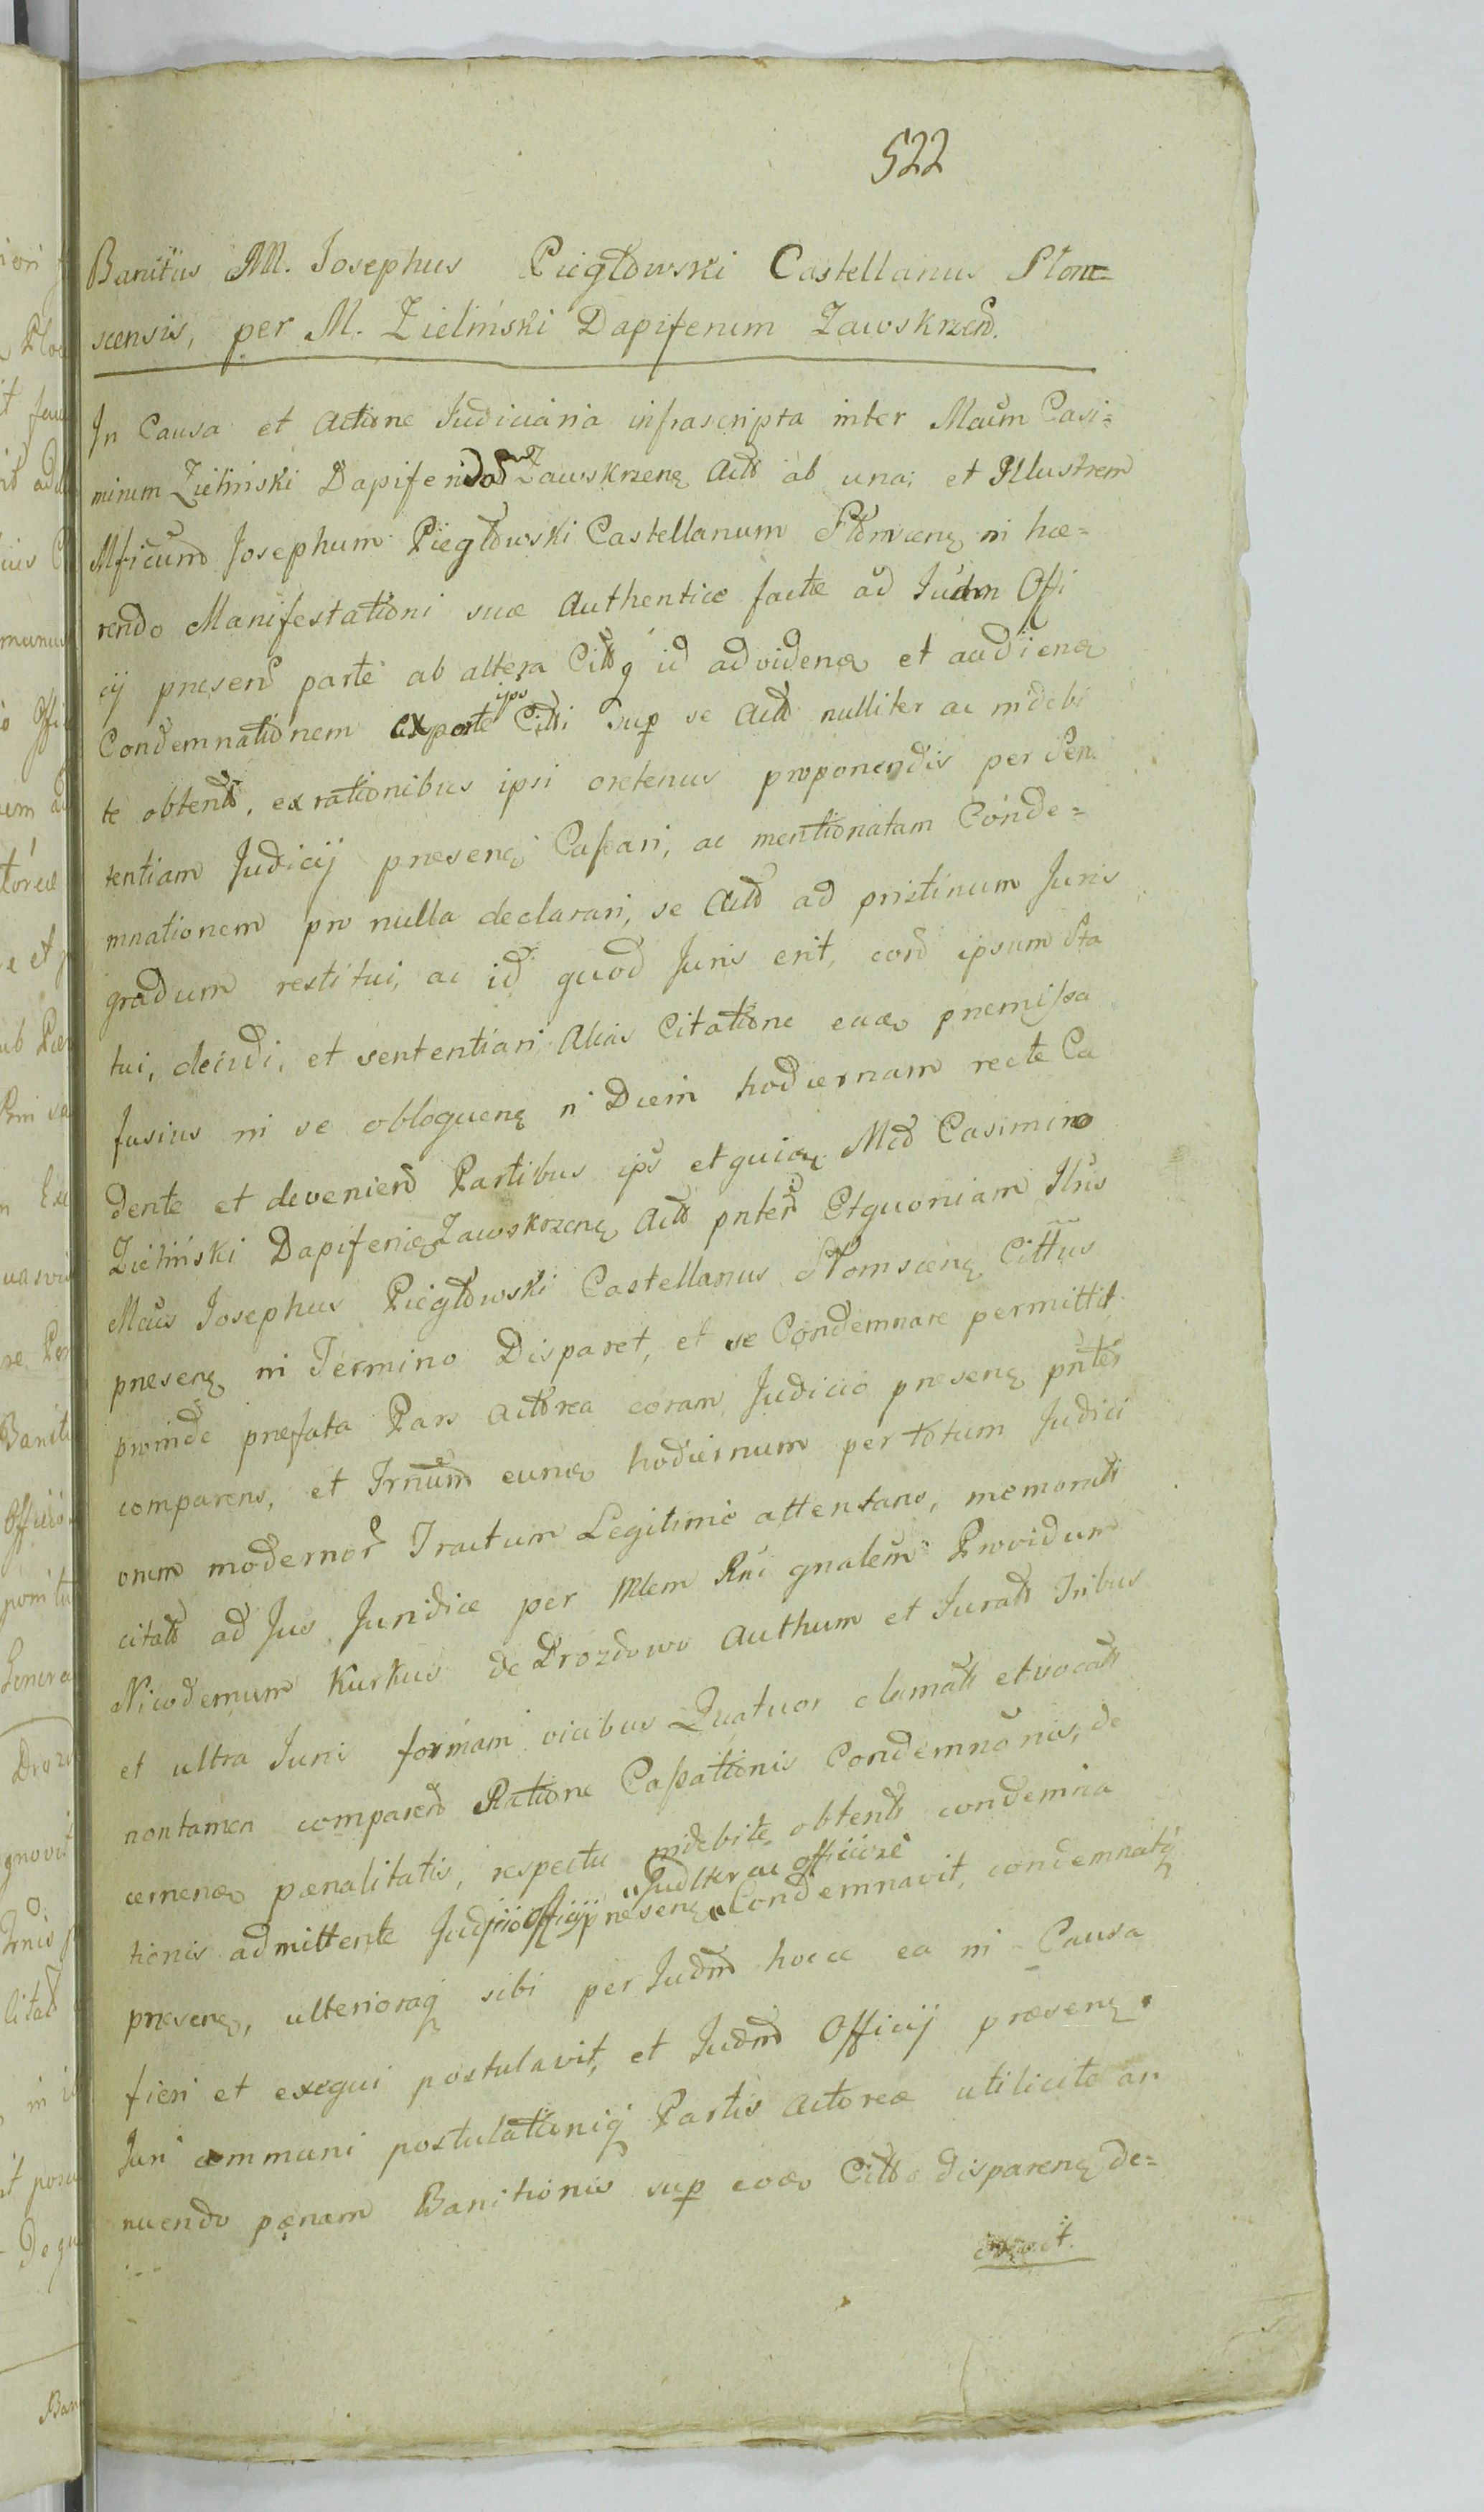 522
Banitus M. Josephus Piegłowski Castellanus Słom=
scensis, per M. Zieliński Dapiferum Zawskrzen.
In Causa et Actione Judiciaria infrascripta inter Mcum Casi=
mirum Zieliński Dapiferum Zawskrzenę Actt ab una; et Illustrem
Mficum Josephum Piegłowski Castellanum Słomscenę in hæ=
rendo Manifestationi suæ Authentice factæ ad Judm Offi
cÿ præsens parte ab altera Cittg id ad videnę et audienę
Condemnationem ex parte ipsi Citti sup se Actt nulliter ac indebi
te obtent, ex rationibus ipsi oretenus proponendis per Sen
tentiam Judicÿ præsenę Cassari, ac mentionatam Conde=
mnationem pro nulla declarari, se Actt ad pristinum Juris
gradum restitui, ac id quod Juris erit, cord ipsum Sta
tui, decidi, et sententiari Alias Citatione euæ præmissa
fusius in se obloquenę in Diem hodiernam recte Ca
dente et deveniend Partibus ips et quia Mcd Casimiro
Zieliński Dapifero Zawskrzenę Actt pnter Et quoniam Illris
Mcus Josephus Piegłowski Castellanus Słomscenę Cittus
præsenę in Termino Disparet, et se Condemnare permittit
proinde præfata Pars Actorea coram Judicio præsenę pnter
comparens, et Trnum eunę hodiernum per totum Judici
orum modernor Tractum Legitime attentans, memorati
citatt ad Jus Juridice per Mlem Rni gnalem Providum
Nicodemum Kurkus de Drozdowo Authum et Juratt Tribus
et ultra Juris formam vicibus Quatuor clamatt et vocatt
non tamen comparend Ratione Cassationis Condemnonis, de
cernenę pænalitatis, respectu indebite obtent condemna
tionis admittente Judicio Officÿ præsenę Judlter ac officiose Condemnavit, condemnatq
præsenę, ulterioraq sibi per Judm hocce ea in Causa
fieri et exequi postulavit, et Judm Officÿ præsenę
Juri communi postulationiq Partis Actoreæ utilicito an
nuendo pænam Banitionis sup eoæ Citto disparenę de=
crevit.